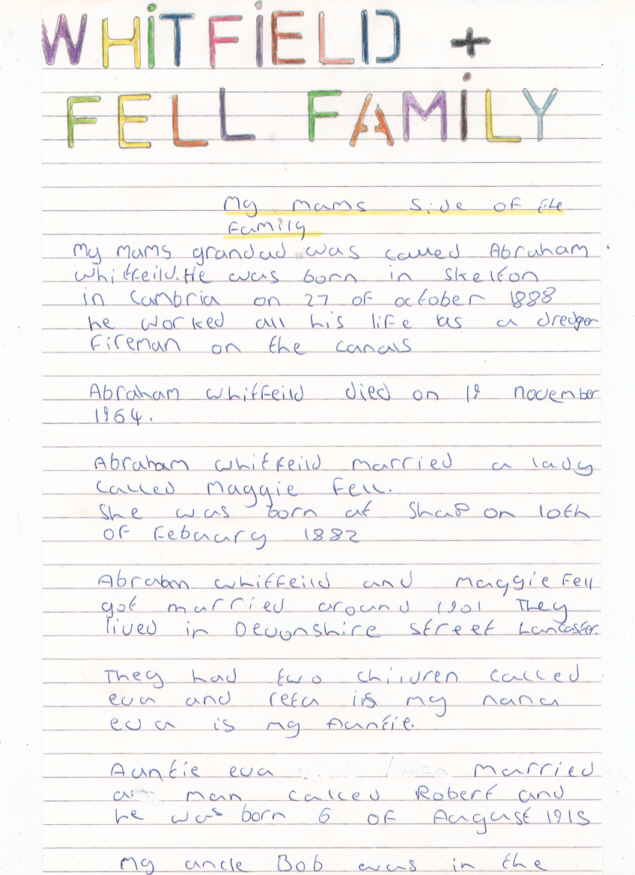 WHiTFiELD +
FELL FAMiLY
My mams side of the
family
My mams grandad was called Abraham
Whitfeild. He was born in Skelton
in Cumbria on 27 of october 1888
he worked all his life as a dredger
fireman on the canals
Abraham whitfeild died on 19 november
1964.
Abraham whitfeild married a lady
called Maggie Fell.
She was born at Shap on 10th
of Febuary 1882
Abraham whitfeild and Maggie Fell
got married around 1901 They
lived in Devonshire street Lancaster.
They had two children called
eva and reta is my nana
eva is my Auntie.
Auntie eva married
a man called Robert and
he was born 6 of August 1915
my uncle Bob was in the